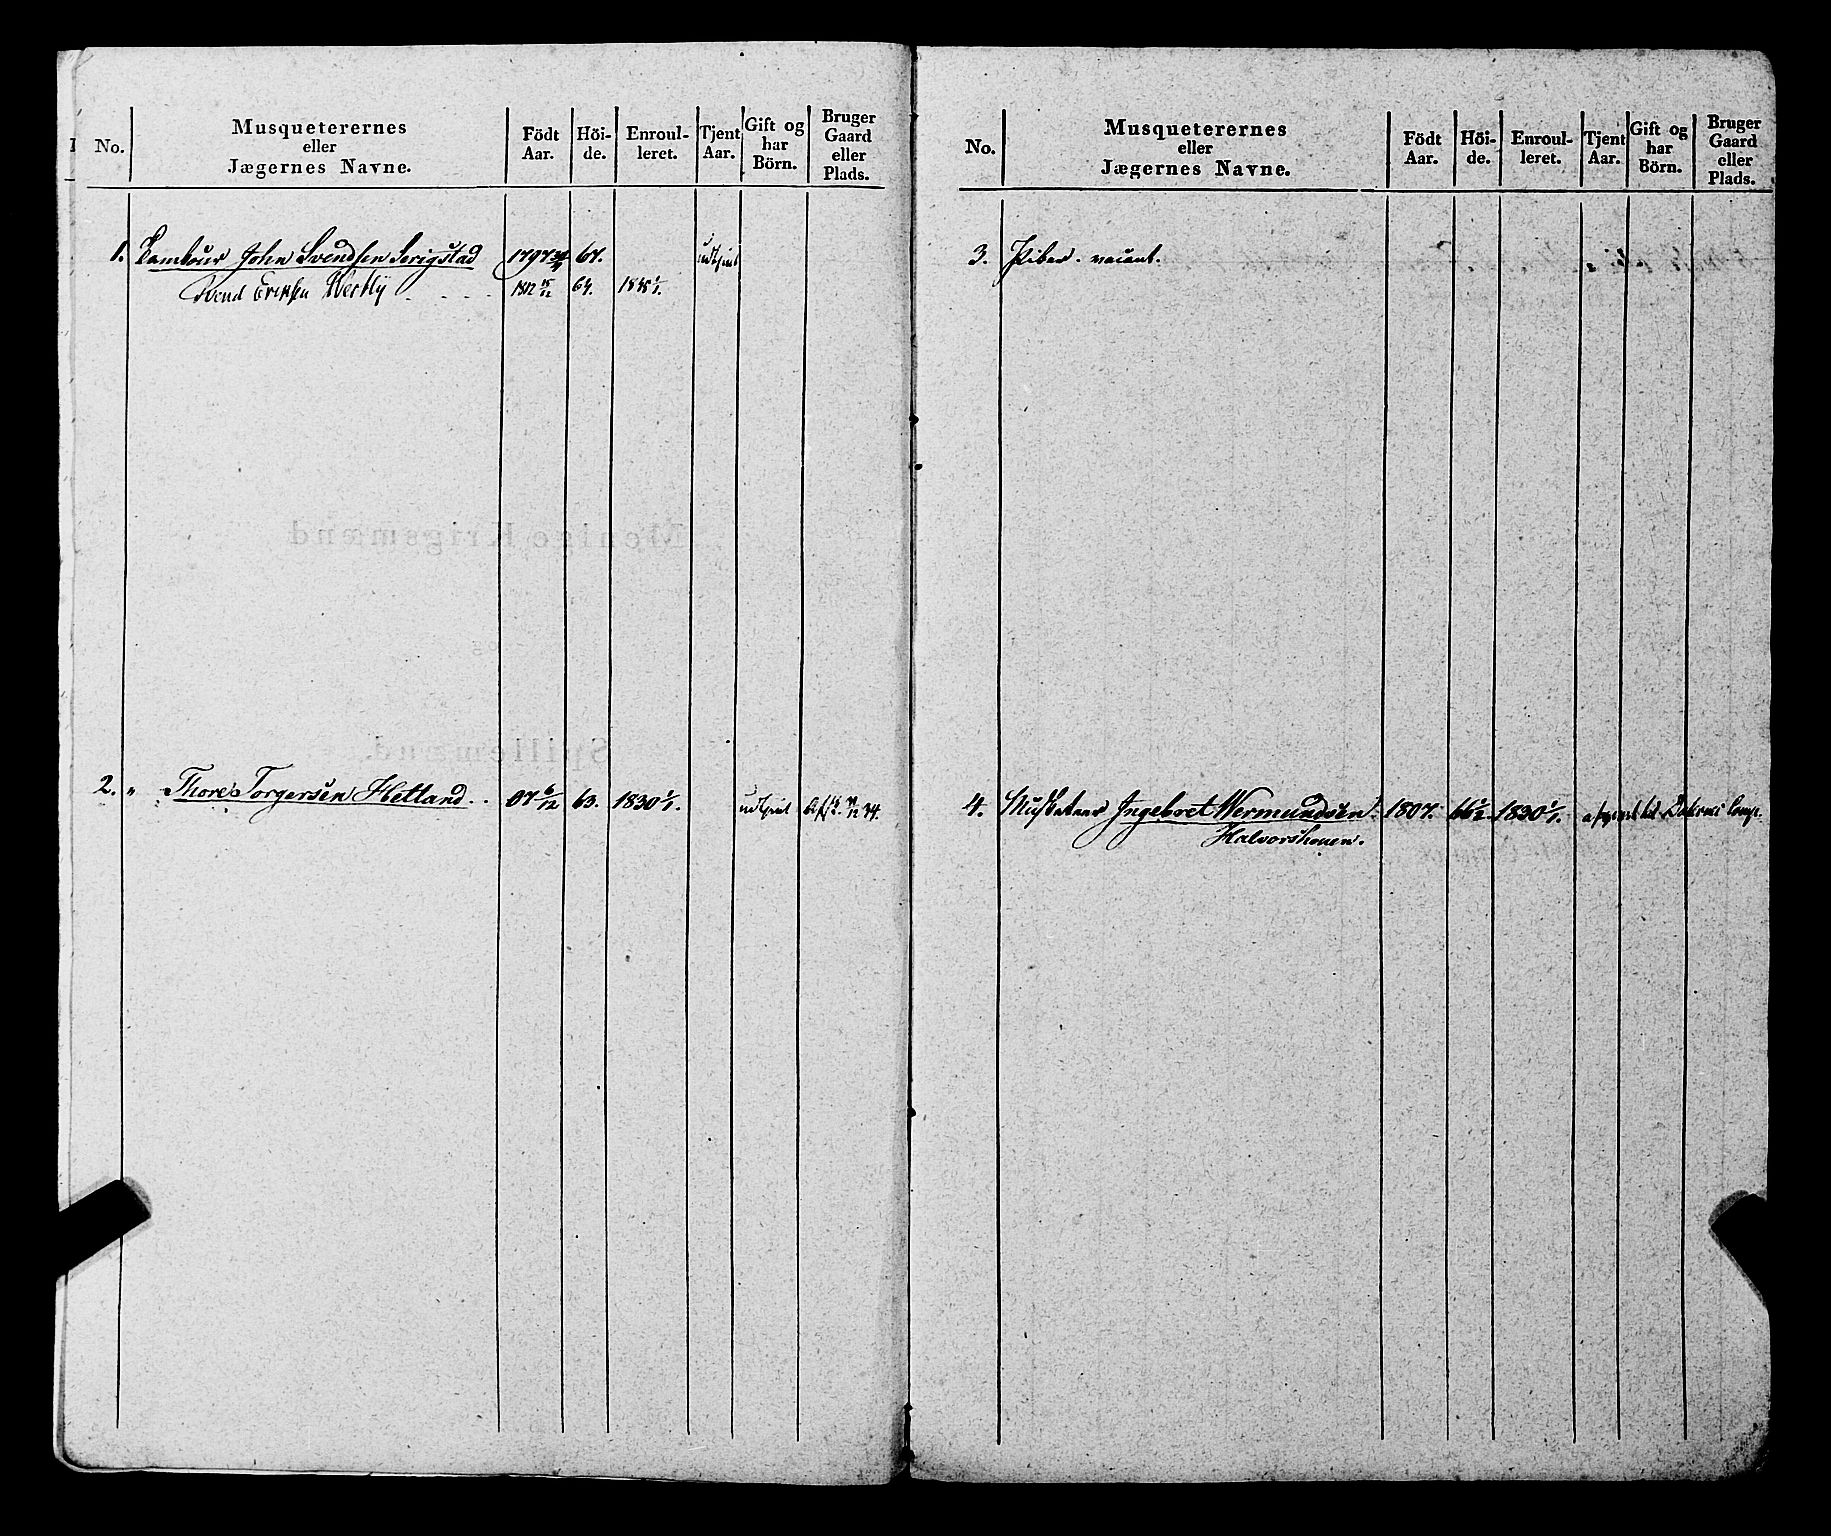 No.
Musqueterernes
eller
Jægernes Navne.
Födt
Aar.
Höi-
de.
Enroul-
leret.
Tjent
Aar.
Gift og
har
Börn.
Bruger
Gaard
eller
Plads.
1. Tambour John Svendsen Serigstad 1797 67. udtjent
Svend Eriksen Westly 1812 15/12 64. 1/1.
2. " Thore Torgersen Hetland 07 6/12 63. 1830 1/1. udtjent 34.
Menige Krigsmænd
Spillemænd.
No.
Musqueterernes
eller
Jægernes Navne.
Födt
Aar.
Höi-
de.
Enroul-
leret.
Tjent
Aar.
Gift og
har
Börn.
Bruger
Gaard
eller
Plads.
3. Piber vacant.
4. Musketeer Ingebret Wermundsen 1807. 66 1/2. 1830 1/1. til Comp.
Halvorshouen.